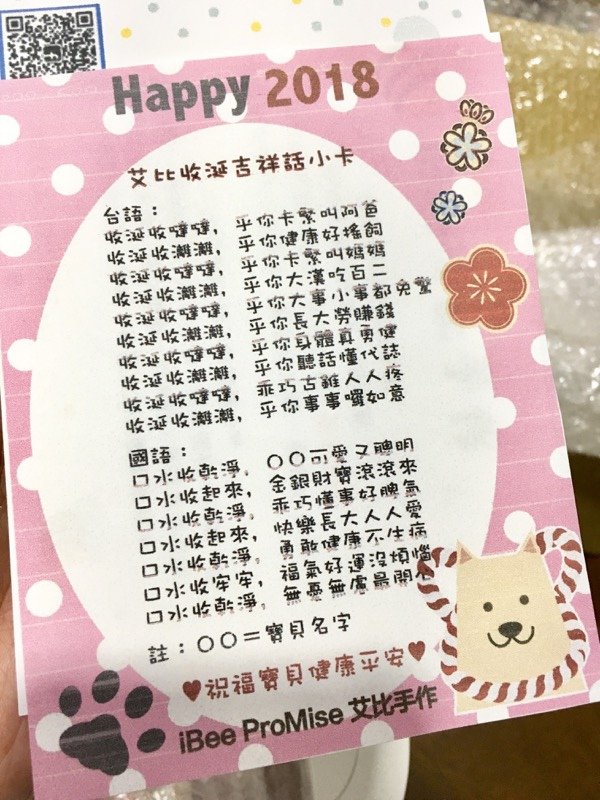 Happy 2018
艾比收涎吉祥話小卡
台語：
收涎收噠噠，乎你卡緊叫阿爸
收涎收瀨瀨，乎你健康好搖飼
收涎收噠噠，乎你卡緊叫媽媽
收涎收瀨瀨，乎你大漢吃百二
收涎收噠噠，乎你大事小事都免驚
收涎收瀨瀨，乎你長大勞賺錢
收涎收噠噠，乎你身體真勇健
收涎收瀨瀨，乎你聽話懂代誌
收涎收噠噠，乖巧古錐人人疼
收涎收瀨瀨，乎你事事囉如意
國語：
口水收乾淨，〇〇可愛又聰明
口水收起來，金銀財寶滾滾來
口水收乾淨，乖巧懂事好脾氣
口水收起來，快樂長大人人愛
口水收乾淨，勇敢健康不生病
口水收牢牢，福氣好運沒煩惱
口水收乾淨，無憂無慮最開心
註：〇〇＝寶貝名字
♥祝福寶貝健康平安♥
iBee ProMise 艾比手作